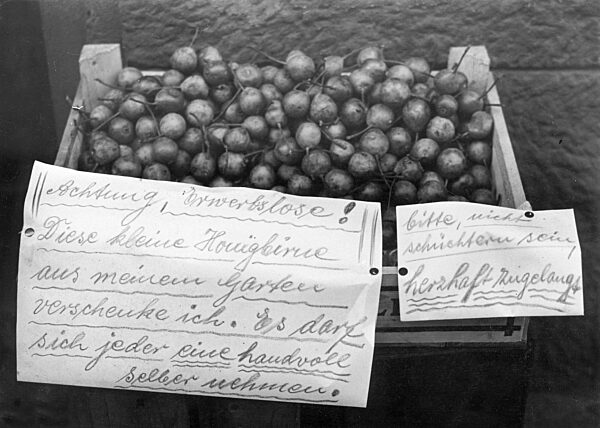 Achtung, Erwerbslose!
Diese kleine Honigbirne
aus meinem Garten
verschenke ich. Es darf
sich jeder eine handvoll
selber nehmen.
bitte, nicht
schüchtern sein,
herzhaft zugelangt